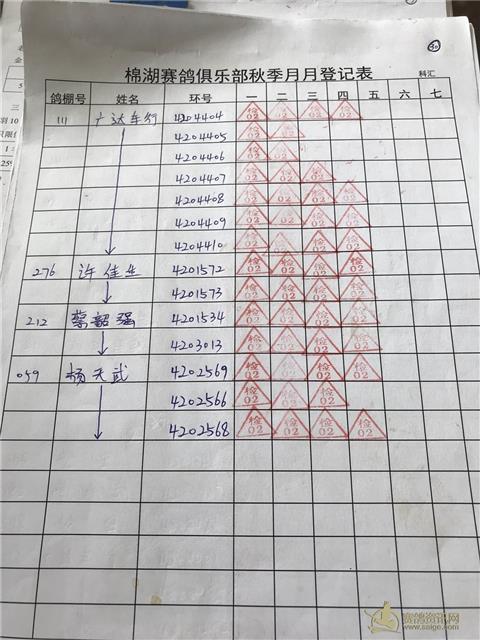 棉湖赛鸽俱乐部秋季月月登记表
科汇
鸽棚号 姓名 环号 一 二 三 四 五 六 七
111 广达车行 4204404 检02 检02 检02 检02
4204405 检02 检02
4204406 检02 检02
4204407 检02 检02 检02
4204408 检02 检02 检02 检02
4204409 检02 检02 检02 检02
4204410 检02 检02 检02 检02
276 许佳生 4201572 检02 检02 检02 检02
4201573 检02 检02 检02 检02
212 蔡韶强 4201534 检02 检02 检02 检02
4203013 检02 检02 检02 检02
059 杨天武 4202569 检02 检02 检02 检02
4202566 检02 检02 检02
4202568 检02 检02 检02 检02
赛鸽资讯网
www.saige.com